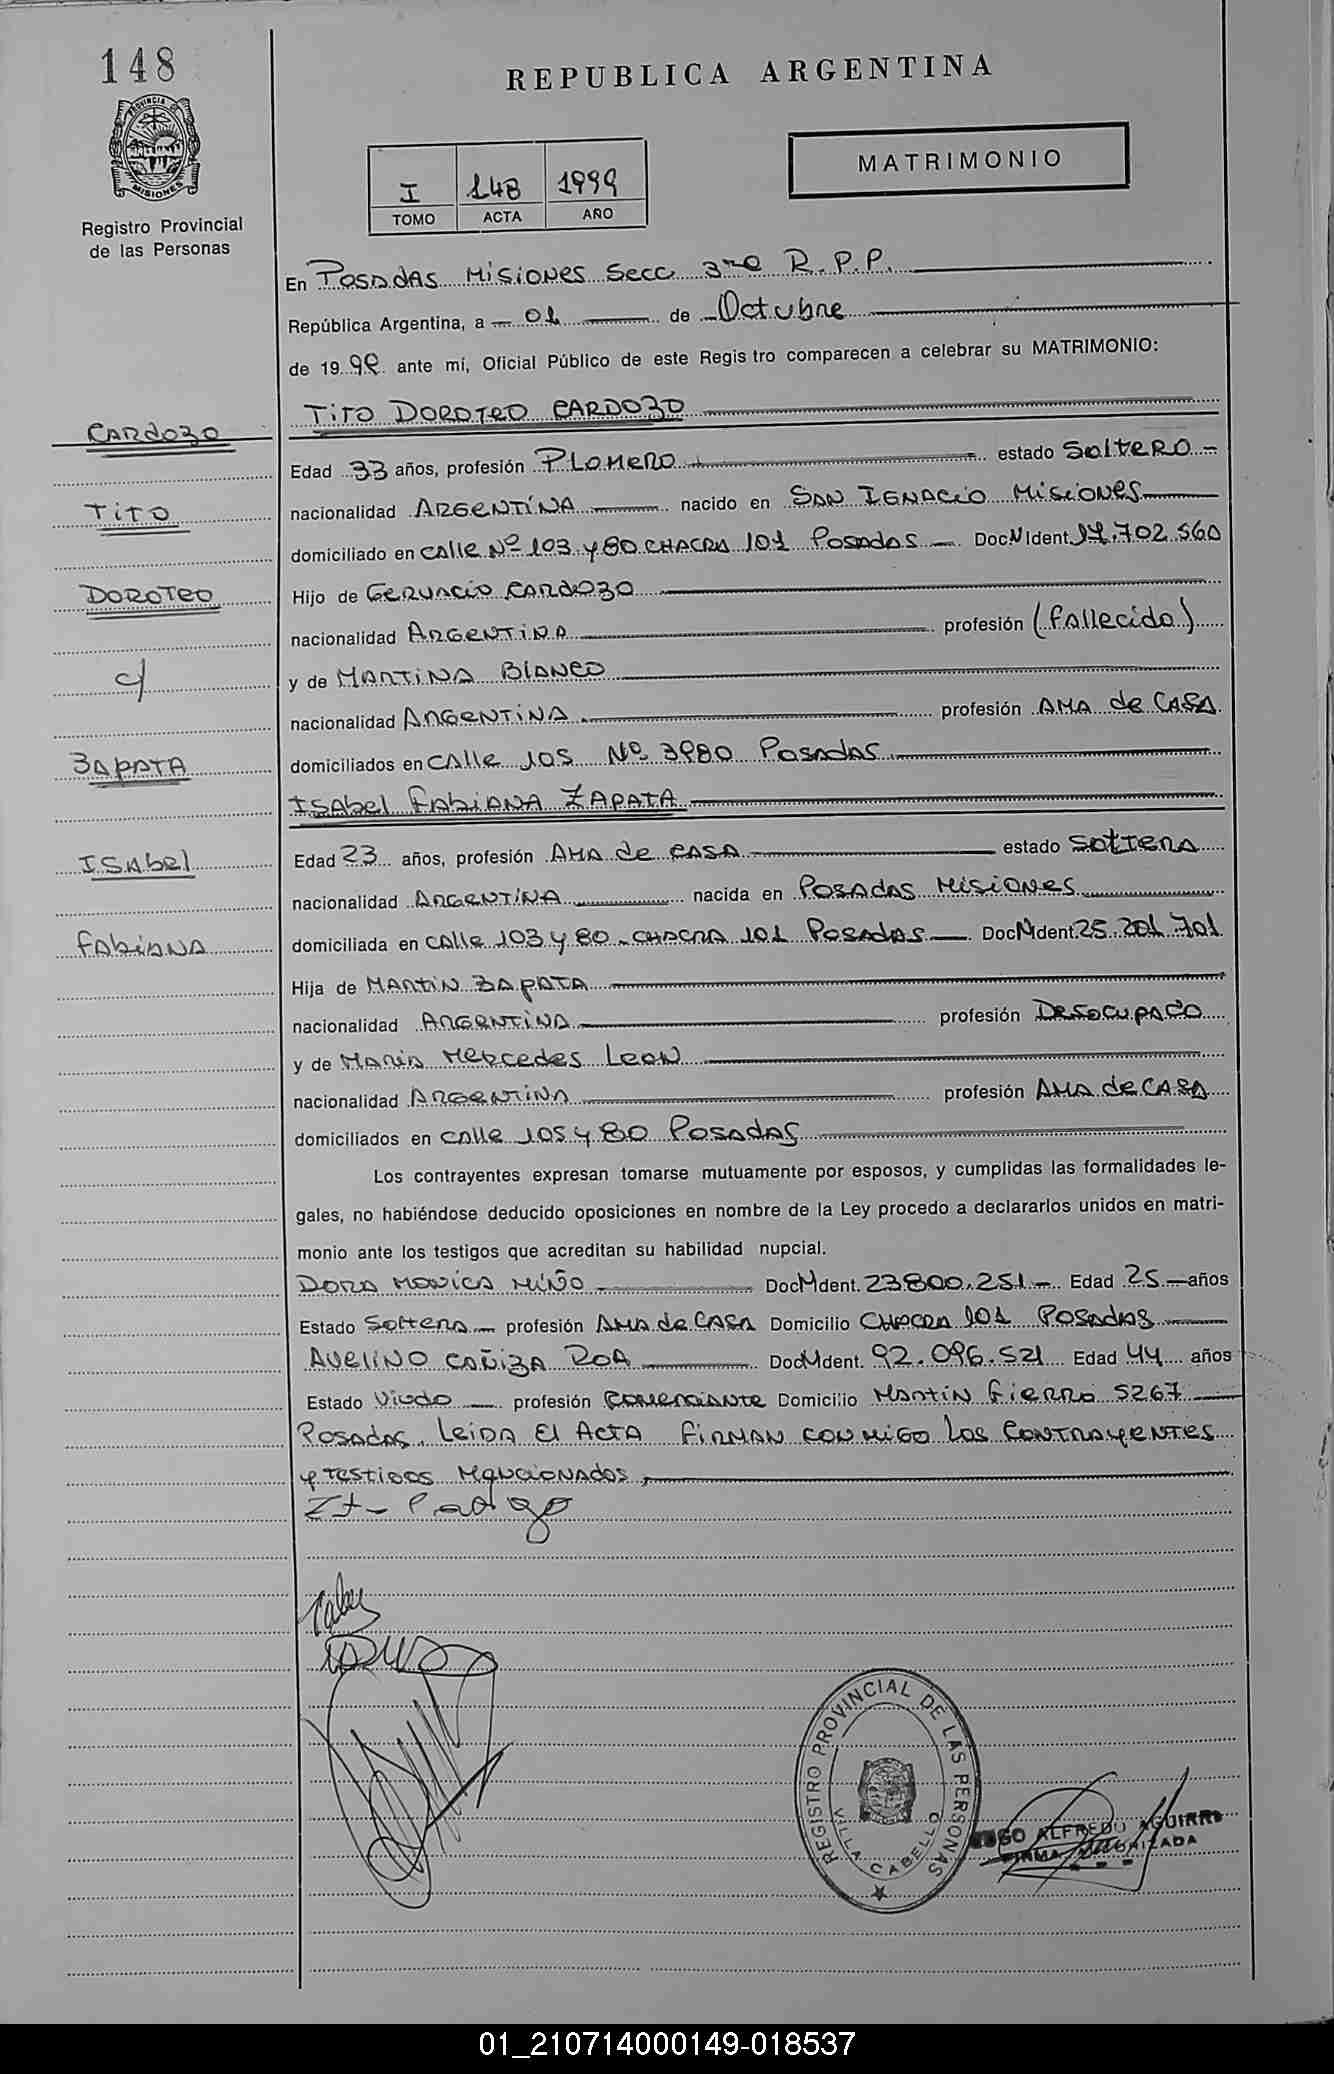 148
REPUBLICA ARGENTINA
PROVINCIA DE
MISIONES
Registro Provincial
de las Personas
MATRIMONIO
I 148 1999
TOMO ACTA AÑO
En Posadas Misiones Secc 3ra R.P.P.
República Argentina, a 01 de Octubre
de 19 99 ante mí, Oficial Público de este Registro comparecen a celebrar su MATRIMONIO:
Tito Doroteo Cardozo
Cardozo
Tito
Doroteo
c/
Zapata
Isabel
Fabiana
Edad 33 años, profesión Plomero estado Soltero
nacionalidad Argentína nacido en San Ignacio Misiones
domiciliado en Calle Nº 103 y 80 Chacra 101 Posadas Doc N Ident. 17.702.560
Hijo de Gervacio Cardozo
nacionalidad Argentina profesión (fallecido)
y de Martina Blanco
nacionalidad Argentina profesión Ama de Casa
domiciliados en Calle 105 Nº 3980 Posadas
Isabel Fabiana Zapata
Edad 23 años, profesión Ama de Casa estado Soltera
nacionalidad Argentina nacida en Posadas Misiones
domiciliada en Calle 103 y 80 - Chacra 101 Posadas Doc N Ident. 25.201.701
Hija de Martin Zapata
nacionalidad Argentina profesión Desocupado
y de Maria Mercedes Leon
nacionalidad Argentina profesión Ama de Casa
domiciliados en Calle 105 y 80 Posadas
Los contrayentes expresan tomarse mutuamente por esposos, y cumplidas las formalidades le-
gales, no habiéndose deducido oposiciones en nombre de la Ley procedo a declararlos unidos en matri-
monio ante los testigos que acreditan su habilidad nupcial.
Dora Monica Miño Doc N Ident. 23.800.251 Edad 25 años
Estado Soltera profesión Ama de Casa Domicilio Chacra 101 Posadas
Avelino Cañiza Roa Doc N Ident. 92.096.521 Edad 44 años
Estado Viudo profesión Comerciante Domicilio Martin Fierro 5267
Posadas. Leida El Acta firman conmigo los contrayentes
y testigos mencionados
REGISTRO PROVINCIAL DE LAS PERSONAS
VILLA CABELLO
ALFREDO AGUIRRE
FIRMA AUTORIZADA
01_210714000149-018537